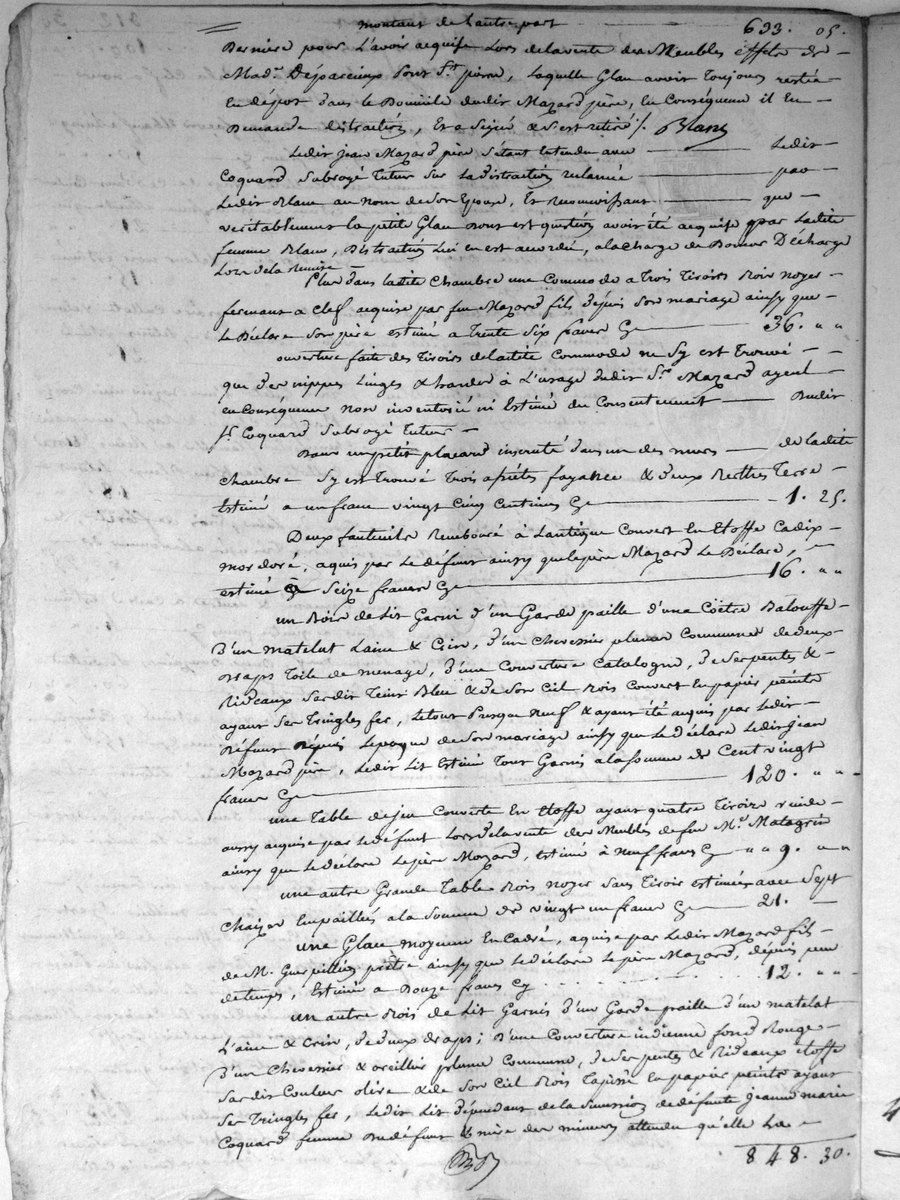 montant de l'autre part 633. 05.
Derniere pour l'avoir acquise Lors delavente des Meubles effets de
Mad.e Desparcieux sous St pierre, laquelle Glace avoir Toujours restée
En dépot dans le Domicile dudit Mazard père, En Conséquence il En
Demande distraction, Et a Signé & s'est retiré /. Blanc
Ledit Jean Mazard père S'étant Entendu avec Ledit
Coquard Subrogé Tuteur Sur La distraction reclamée par
Ledit Blanc au Nom de Son Epouse, Et Reconnoissant que
veritablement La petite Glace dont est question avoir été acquise par Ladite
femme Blanc, Distraction Lui en est accordée, ala charge de Donner Décharge
Lors dela remise
Plus dans ladite Chambre une Commode a Trois Tiroirs Bois noyer
fermant a Clef acquise par feu Mazard fils depuis Son mariage ainsy que
Le Déclare Son père estimée a Trente Six francs Cy 36. " "
ouverture faite des Tiroirs de Ladite Commode ne Sy est Trouvé
que des nippes Linges & hardes à L'usage dudit Sr. Mazard ayent
en Conséquence Non inventorié ni Estimé du Consentement Dudit
Sr. Coquard Subrogé Tuteur
Dans un petit placard incruté dans un des murs de Ladite
Chambre Sy est Trouvé Trois assietes fayance & deux Terre
Estimé a un franc vingt Cinq Centimes Cy 1. 25.
Deux fauteuils Rembouré à Lantique Couvert En Etoffe Cadix
mordoré, aquis par Le défunt ainsy que Le père Mazard Le Déclare,
estimé Seize francs Cy 16. " "
un Bois de Lit Garni d'un Garde paille d'une Coëtre Balouffe
D'un matelat Laine & Crin, d'un Chevessier plume Commune de deux
draps Toile de menage, d'une Couverture Catalogne, de Ses pentes &
Rideaux Sardit Teint Bleu & de Son Ciel Bois Couvert En papier peinte
ayant Ses Tringles fer, Le tout Presque Neuf & ayant été acquis par Ledit
Défunt Depuis L'epoque de Son mariage ainsy que Le déclare Ledit Jean
Mazard père, Ledit Lit Estimé Tout Garni ala somme de Cent vingt
francs Cy 120. " "
une Table de jeu Couverte En Etoffe ayant quatre Tiroirs vuide
aussy acquise par Le défunt Lors delavente des Meubles de feu Mr. Malagrin
ainsy que Le déclare Le père Mazard, Estimé à Neuf francs Cy " " 9. " "
une autre Grande Table Bois Noyer Sans Tiroir estimée avec Sept
Chaizes Empaillés ala Somme de vingt un francs Cy 21.
une Glace moyenne Encadré, aquise par Ledit Mazard fils
de M. Guerpillion prêtre ainsy que Le déclare Le père Mazard, depuis peu
de temps, Estimée a Douze francs Cy 12. " "
un autre Bois de Lit Garni d'un Garde paille d'un matelat
Laine & Crin, de deux draps; D'une Couverture indienne fond Rouge
D'un Chevessier & oreillier plume Commune, de Ses pentes & Rideaux étoffe
Sardis Couleur olive & de Son Ciel Bois Tapissé En papier peints ayant
Ses Tringles fer, Ledit Lit dépendant de la Succession de défunte Jeanne marie
Coquard femme Dudéfunt & mère des mineurs attendu qu'elle La
848. 30.